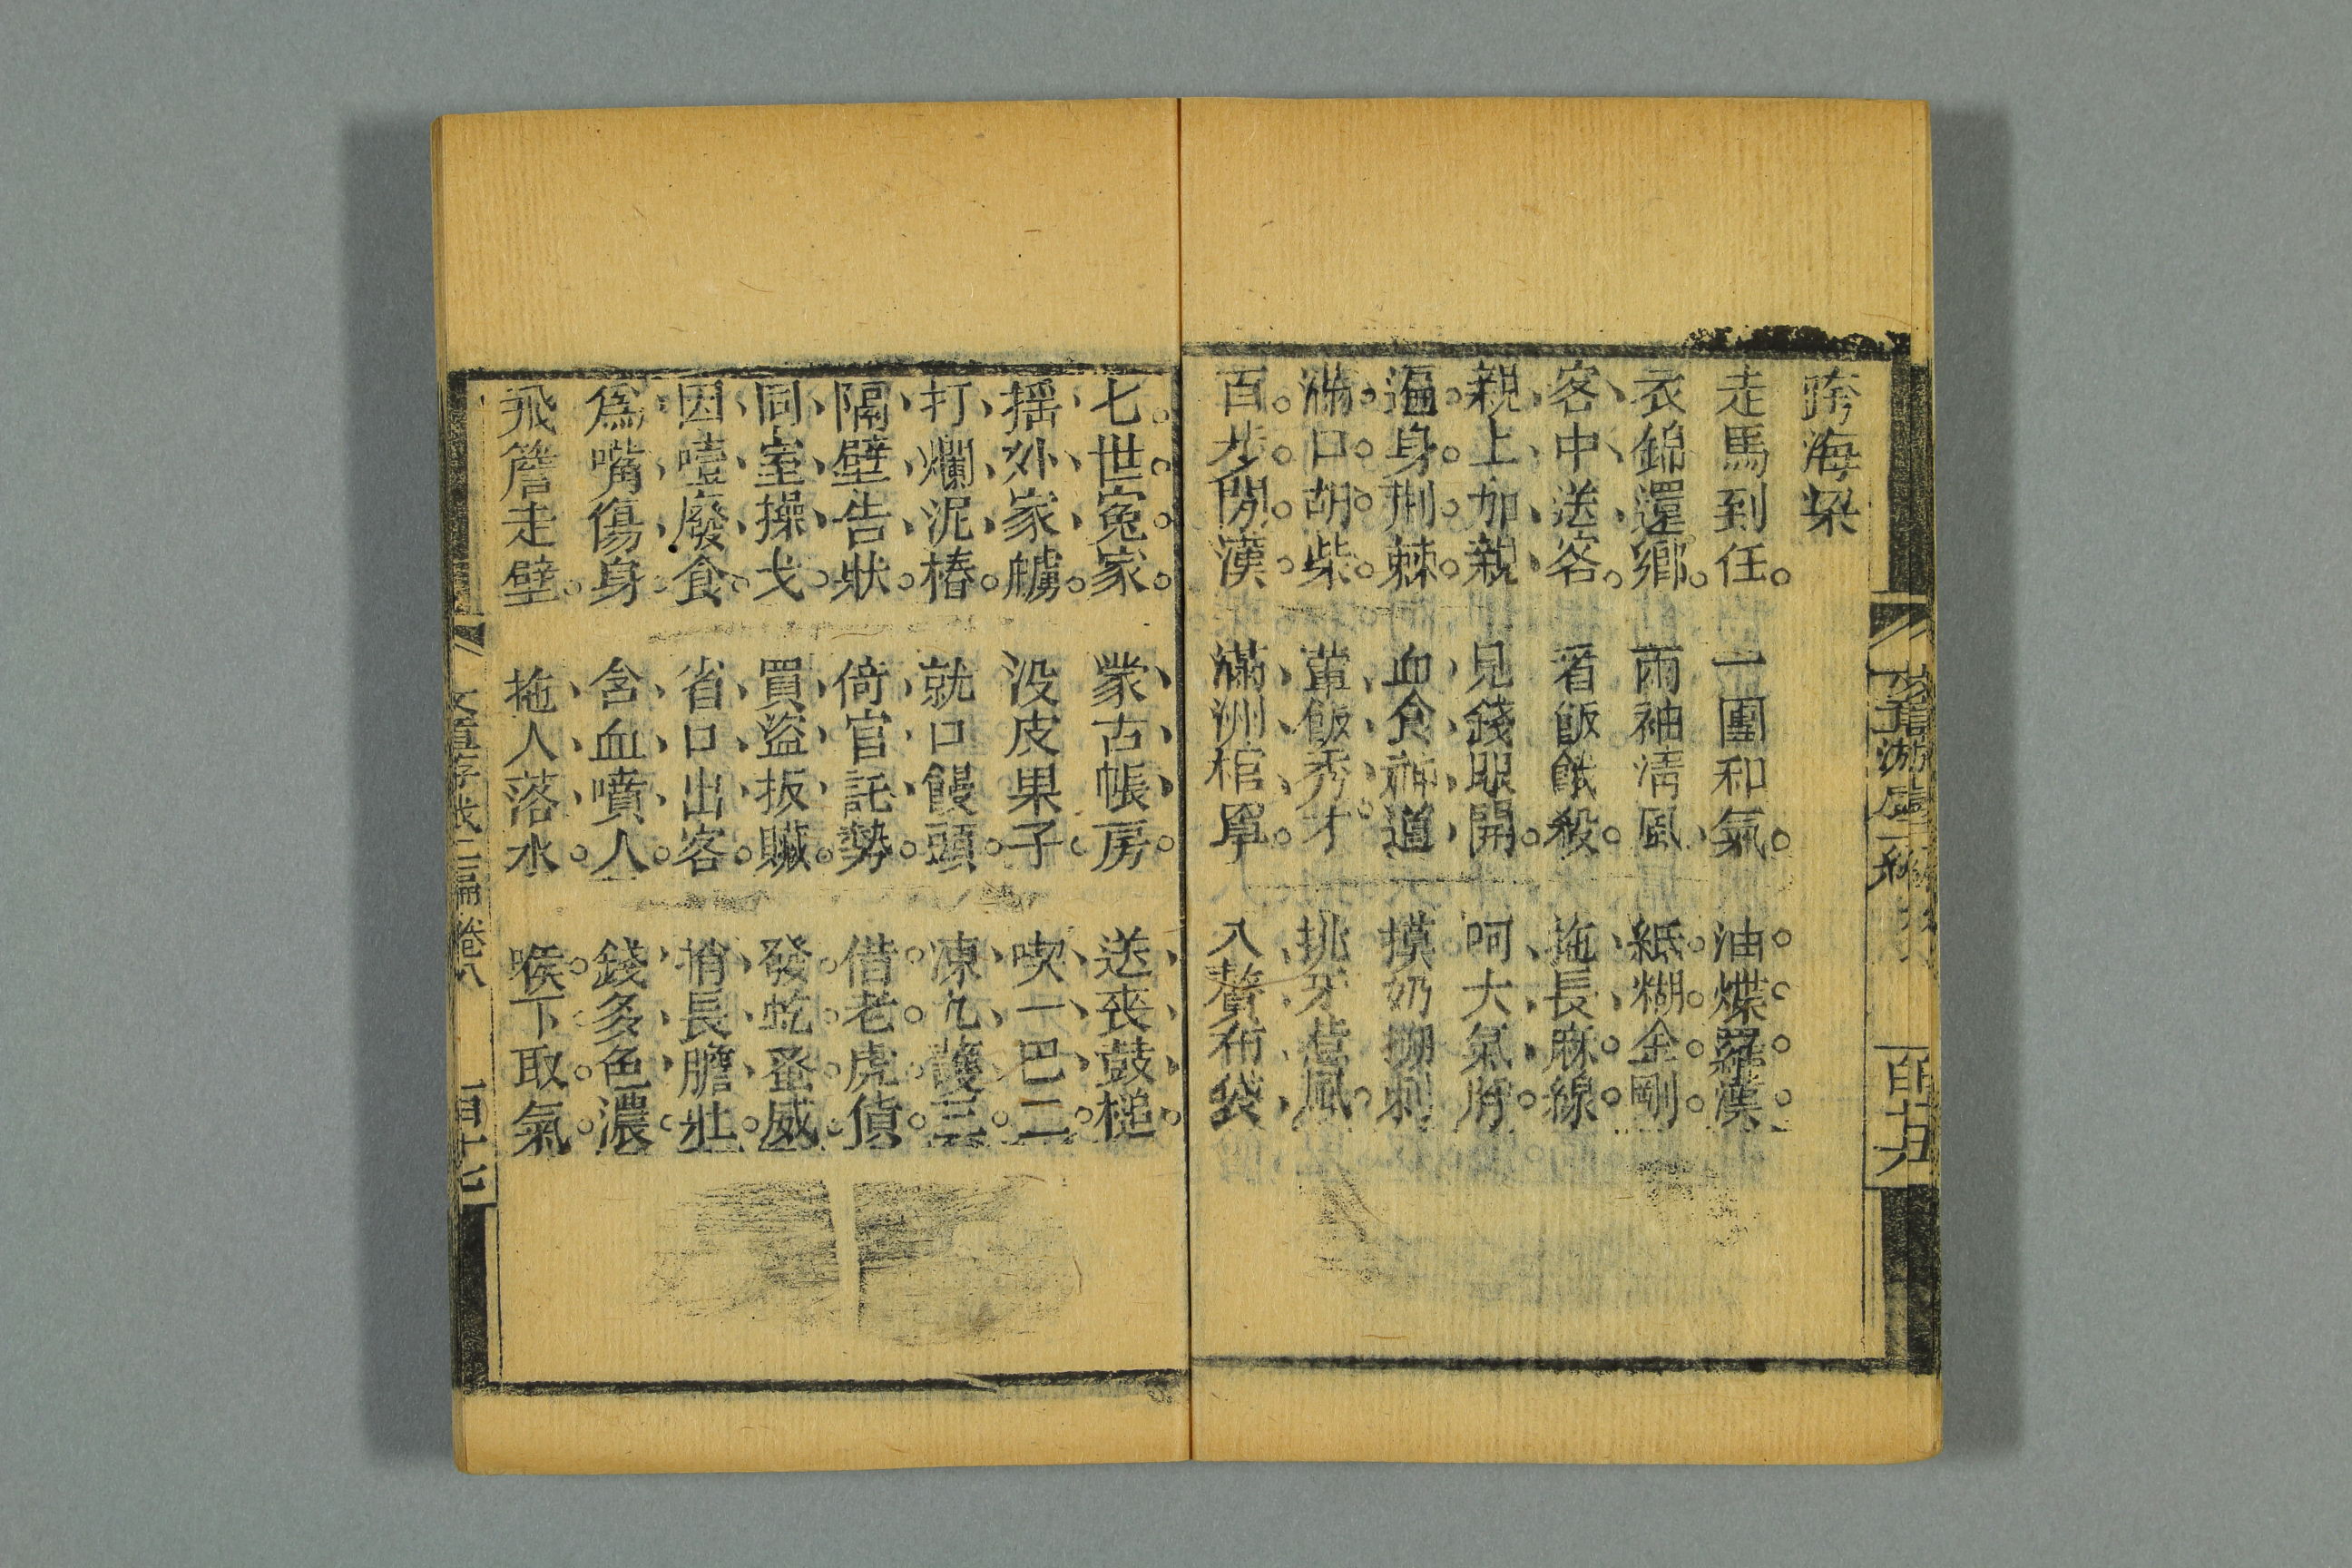 跨海梁
走馬到任 一團和氣 油煠羅漢
衣錦還鄉 兩袖清風 紙糊金剛
客中送客 看飯餓殺 拖長麻線
親上加親 見錢眼開 呵大氣脬
遍身荆棘 血食神道 摸奶捌刺
滿口胡柴 葷飯秀才 挑牙煮風
百步閒漢 滿洲棺罩 入贅布袋
七世寃家 蒙古帳房 送丧鼓槌
摇外家艣 没皮果子 喫一巴二
打爛泥樁 就口饅頭 凍九護三
隔壁告狀 倚官託勢 借老虎債
同室操戈 買盜扳贜 發虼蚤威
因噎廢食 省口出客 捎長膽壯
爲嘴傷身 含血噴人 錢多色濃
飛簷走壁 拖人落水 喉下取氣
文章游戲二編 卷八
百十七